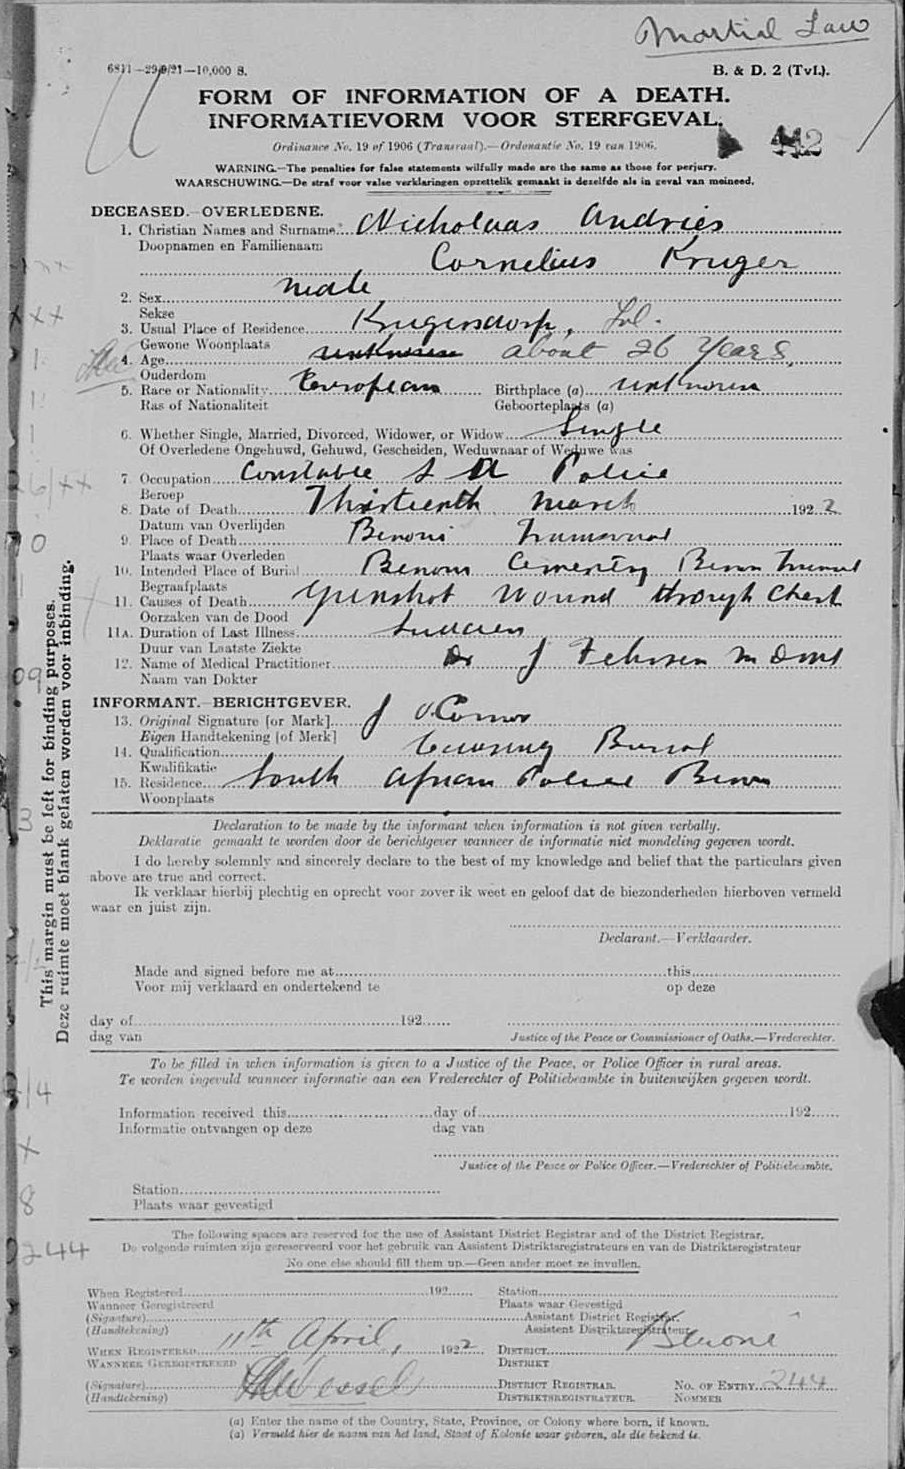 Martial Law
6811—29/9/21—10,000 S. B. & D. 2 (Tvl.).
FORM OF INFORMATION OF A DEATH.
INFORMATIEVORM VOOR STERFGEVAL.
Ordinance No. 19 of 1906 (Transvaal).—Ordonantie No. 19 van 1906.
WARNING.—The penalties for false statements wilfully made are the same as those for perjury.
WAARSCHUWING.—De straf voor valse verklaringen opzettelik gemaakt is dezelfde als in geval van meineed.
DECEASED.—OVERLEDENE.
1. Christian Names and Surname Nicholaas Andries
Doopnamen en Familienaam
Cornelius Kruger
2. Sex male
Sekse
3. Usual Place of Residence Krugersdorp, Tvl.
Gewone Woonplaats
4. Age unknown about 26 years
Ouderdom
5. Race or Nationality European Birthplace (a) unknown
Ras of Nationaliteit Geboorteplaats (a)
6. Whether Single, Married, Divorced, Widower, or Widow Single
Of Overledene Ongehuwd, Gehuwd, Gescheiden, Weduwnaar of Weduwe was
7. Occupation Constable S A Police
Beroep
8. Date of Death Thirteenth March 1922
Datum van Overlijden
9. Place of Death Benoni Transvaal
Plaats waar Overleden
10. Intended Place of Burial Benoni Cemetery Benoni Transvaal
Begraafplaats
11. Causes of Death Gunshot wound through Chest
Oorzaken van de Dood
11A. Duration of Last Illness Sudden
Duur van Laatste Ziekte
12. Name of Medical Practitioner Dr J
Naam van Dokter
INFORMANT.—BERICHTGEVER.
13. Original Signature [or Mark] J O'Connor
Eigen Handtekening [of Merk]
14. Qualification Causing Burial
Kwalifikatie
15. Residence South African Police Benoni
Woonplaats
Declaration to be made by the informant when information is not given verbally.
Deklaratie gemaakt te worden door de berichtgever wanneer de informatie niet mondeling gegeven wordt.
I do hereby solemnly and sincerely declare to the best of my knowledge and belief that the particulars given
above are true and correct.
Ik verklaar hierbij plechtig en oprecht voor zover ik weet en geloof dat de biezonderheden hierboven vermeld
waar en juist zijn.
Declarant.—Verklaarder.
Made and signed before me at this
Voor mij verklaard en ondertekend te op deze
day of 192
dag van Justice of the Peace or Commissioner of Oaths.—Vrederechter.
To be filled in when information is given to a Justice of the Peace, or Police Officer in rural areas.
Te worden ingevuld wanneer informatie aan een Vrederechter of Politiebeambte in buitenwijken gegeven wordt.
Information received this day of 192
Informatie ontvangen op deze dag van
Justice of the Peace or Police Officer.—Vrederechter of Politiebeambte.
Station
Plaats waar gevestigd
The following spaces are reserved for the use of Assistant District Registrar and of the District Registrar.
De volgende ruimten zijn gereserveerd voor het gebruik van Assistent Distriktsregistrateurs en van de Distriktsregistrateur
No one else should fill them up.—Geen ander moet ze invullen.
When Registered 192 Station
Wanneer Geregistreerd Plaats waar Gevestigd
(Signature) Assistant District Registrar.
(Handtekening) Assistent Distriktsregistrateur.
WHEN REGISTERED 11th April, 1922 DISTRICT Benoni
WANNEER GEREGISTREERD DISTRIKT
(Signature) DISTRICT REGISTRAR. NO. OF ENTRY 244
(Handtekening) DISTRIKTSREGISTRATEUR. NOMMER
(a) Enter the name of the Country, State, Province, or Colony where born, if known.
(a) Vermeld hier de naam van het land, Staat of Kolonie waar geboren, als die bekend is.
This margin must be left for binding purposes.
Deze ruimte moet blank gelaten worden voor inbinding.
244